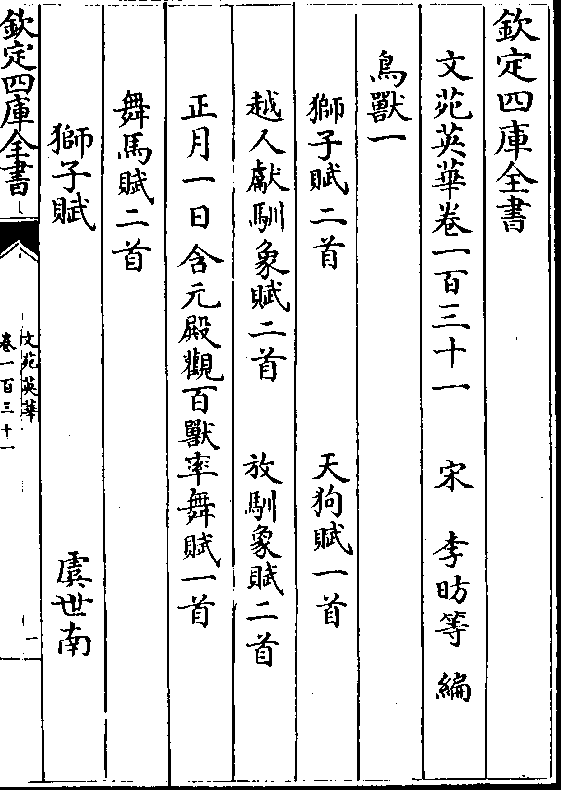 欽定四庫全書
文苑英華卷一百三十一 宋 李昉等 編
鳥獸一
獅子賦二首 天狗賦一首
越人獻馴象賦二首 放馴象賦二首
正月一日含元殿觀百獸率舞賦一首
舞馬賦二首
獅子賦 虞世南
欽定四庫全書
文苑英華
卷一百三十一
一